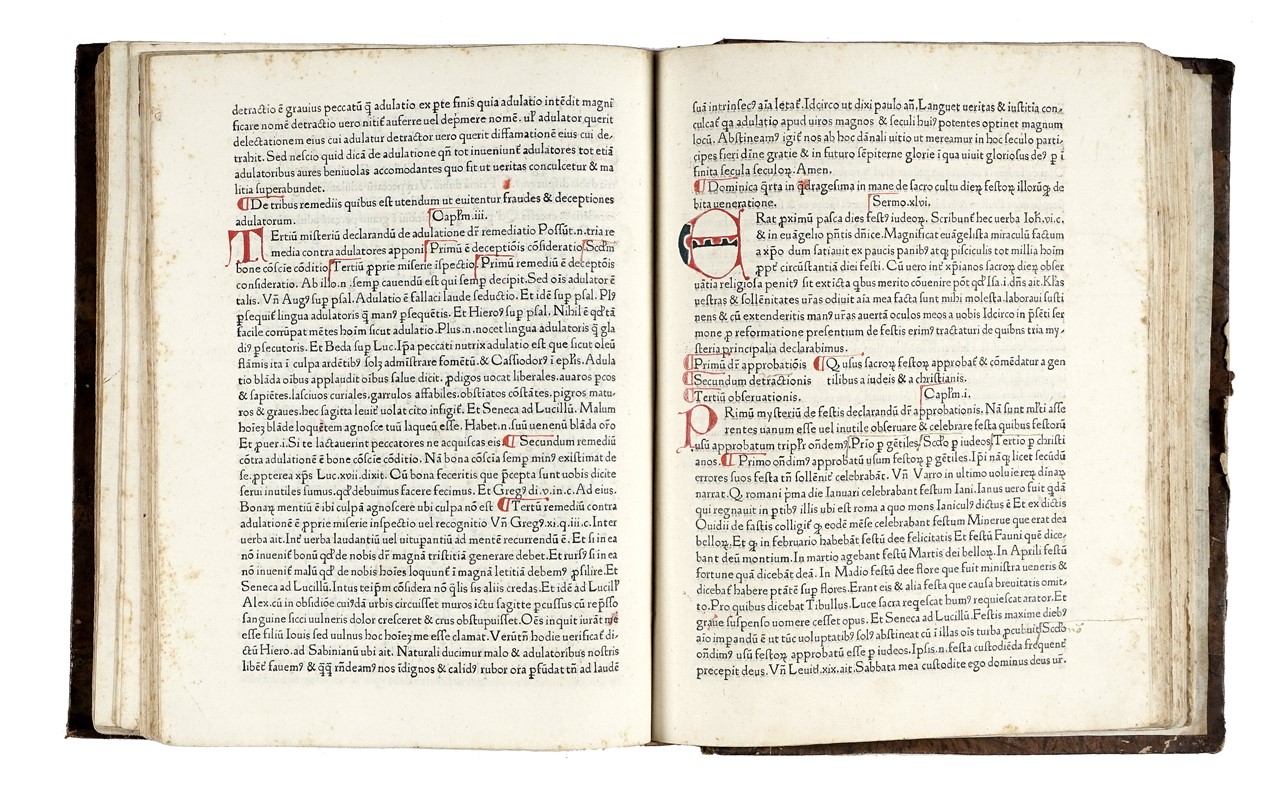 detractio ē grauius peccatū q̄ adulatio ex ꝑte finis quia adulatio intēdit magni
ficare nomē detractio uero nitit̄ auferre uel dep̄mere nomē. uł adulator querit
delectationem eius cui adulatur detractor uero querit diffamationē eius cui de,
trahit. Sed nescio quid dicā de adulatione qn̄ tot inueniunt̄ adulatores tot etiā
adulatoribus aures beniuolas accomodantes quo fit ut ueritas conculcetur & ma
litia superabundet.
¶ De tribus remediis quibus est utendum ut euitentur fraudes & deceptiones
adulatorum. Capłm.iii.
TErtiū misteriū declarandū de adulatione dr̄ remediatio Possūt.n.tria re
media contra adulatores apponi Primū ē deceptiōis cōsideratio Scd̄m
bone cōscie cōditio Tertiū ꝓprie miserie īspectio Primū remediū ē deceptōis
consideratio. Ab illo.n.semp cauendū est qui semp decipit. Sed oīs adulator ē
talis. Vn̄ Augꝰ sup psal. Adulatio ē fallaci laude seductio. Et idē sup psal. Plꝰ
ꝑsequit̄ lingua adulatoris q̄ manꝰ ꝑsequētis. Et Hieroꝰ sup psal. Nihil ē qd̄ tā
facile corrūpat mētes hoīm sicut adulatio. Plus.n.nocet lingua adulatoris q̄ gla
diꝰ ꝑsecutoris. Et Beda sup Luc. Ip̄a peccati nutrix adulatio est que sicut oleū
flāmis ita ī culpa ardētibꝰ solꝫ admīstrare fomētū. & Cassiodorꝰ ī epłis. Adula
tio blāda oībus applaudit oībus salue dicit. ꝓdigos uocat liberales. auaros ꝑcos
& sapiētes. lasciuos curiales. garrulos affabiles. obstiatos cōstātes. pigros matu,
ros & graues. hec sagitta leuit̄ uolat cito infigit̄. Et Seneca ad Lucillū. Malum
hoīeꝫ blāde loquētem agnosce tuū laqueū esse. Habet.n.suū uenenū blāda orō
Et ꝓuer.i. Si te lactauerint peccatores ne acquiscas eis ¶ Secundum remediū
cōtra adulationē ē bone cōscie cōditio. Nā bona cōscia semp minꝰ existimat de
se. ꝓpterea xp̄s Luc.xvii.dixit. Cū bona feceritis que p̄cepta sunt uobis dicite
serui inutiles sumus. qd̄ debuimus facere fecimus. Et Gregꝰ di.v.in.c. Ad eius.
Bonaꝝ mentiū ē ibi culpā agnoscere ubi culpa nō est ¶ Tertiū remediū contra
adulationē ē ꝓprie miserie inspectio uel recognitio Vn̄ Gregꝰ.xi.q.iii.c.Inter
uerba ait. Int̄ uerba laudantiū uel uitupantiū ad mentē recurrendū ē. Et si in ea
nō inuenit̄ bonū qd̄ de nobis dr̄ magnā tristitiā generare debet. Et rursꝰ si in ea
nō inuenit̄ malū qd̄ de nobis hoīes loquunt̄ ī magnā letitiā debemꝰ ꝓsilire. Et
Seneca ad Lucillū. Intus teip̄m cōsidera nō q̄lis sis aliis credas. Et idē ad Lucilł
Alex. cū in obsidiōe cuiꝰdā urbis circuisset muros ictu sagitte ꝑcussus cū rep̄sso
sanguine sicci uulneris dolor cresceret & crus obstupuisset. Oēs inquit iurāt me
esse filiū Iouis sed uulnus hoc hoīeꝫ me esse clamat. Verūtn̄ hodie uerificat̄ di,
ctū Hiero. ad Sabinianū ubi ait. Naturali ducimur malo & adulatoribus nostris
libēt̄ fauemꝰ & q̄q̄ rn̄deamꝰ nos īdignos & calidꝰ rubor ora ꝓfūdat tn̄ ad laudē
suā intrinsecꝰ aīa letat̄. Idcirco ut dixi paulo an̄. Languet ueritas & iustitia con,
culcat̄ qa adulatio apud uiros magnos & seculi huiꝰ potentes optinet magnum
locū. Abstineamꝰ igit̄ nos ab hoc dānali uitio ut mereamur in hoc seculo parti,
cipes fieri diīne gratie & in futuro sēpiterne glorie ī qua uiuit gloriosus deꝰ ꝑ ī
finita secula seculoꝝ. Amen.
¶ Dominica q̄rta in q̄dragesima in mane de sacro cultu dieꝝ festoꝝ illorūqꝫ de
bita ueneratione. Sermo.xlvi.
ERat ꝓximū pasca dies festꝰ iudeoꝝ. Scribunt̄ hec uerba Ioh.vi.c.
& in euāgelio pn̄tis dn̄ice. Magnificat euāgelista miraculū factum
a xp̄o dum satiauit ex paucis panibꝰ atqꝫ pisciculis tot millia hoīm
ꝓpt̄ circūstantiā diei festi. Cū uero int̄ xp̄ianos sacroꝝ dieꝝ obser
uātia religiosa penitꝰ sit exticta qbus merito cōuenire pōt qd̄ Isa.i.dn̄s ait. Kłas
uestras & sollēnitates ur̄as odiuit aīa mea facta sunt mihi molesta. laboraui susti
nens & cū extenderitis manꝰ ur̄as auertā oculos meos a uobis Idcirco in p̄sēti ser
mone ꝓ reformatione presentium de festis erimꝰ tractaturi de quibus tria my,
steria principalia declarabimus.
¶ Primū dr̄ approbatiōis ¶ Q̨ usus sacroꝝ festoꝝ approbat̄ & cōmēdatur a gen
¶ Secundum detractionis tilibus a iudeis & a christianis.
¶ Tertiū obseruationis. Capłm.i.
PRimū mysteriū de festis declarandū dr̄ approbationis. Nā sunt młti asse
rentes uanum esse uel inutile obseruare & celebrare festa quibus festorū
usū approbatum triplr̄ on̄demꝰ. Prīo ꝑ gētiles Scd̄o ꝑ iudeos Tertio ꝑ christi
anos. ¶ Primo on̄dimꝰ approbatū usum festoꝝ ꝑ gētiles. Ip̄i nāqꝫ licet secūdū
errores suos festa tn̄ sollēnit̄ celebrabāt. Vn̄ Varro in ultimo uoluieꝝ dinaꝝ
narrat. Q̨ romani p̄ma die Ianuari celebrabant festum Iani. Ianus uero fuit qdā
qui regnauit in ꝑtibꝰ illis ubi est roma a quo mons Ianiculꝰ dictus ē Et ex dictis
Ouidii de fastis colligit̄ ꝙ eodē mēse celebrabant festum Minerue que erat dea
belloꝝ. Et ꝙ in februario habebāt festū dee felicitatis Et festū Fauni quē dice,
bant deū montium. In martio agebant festū Martis dei belloꝝ. In Aprili festū
fortune quā dicebāt deā. In Madio festū dee flore que fuit ministra ueneris &
dicebat̄ habere ptātē sup flores. Erant eis & alia festa que causa breuitatis omit,
to. Pro quibus dicebat Tibullus. Luce sacra reqescat humꝰ requiescat arator. Et
graue suspenso uomere cesset opus. Et Seneca ad Lucillū. Festis maxime diebꝰ
aīo impandū ē ut tūc uoluptatibꝰ solꝰ abstineat cū ī illas oīs turba ꝓcubuit Scd̄o
on̄dimꝰ usū festoꝝ approbatū esse ꝑ iudeos. Ipsis.n.festa custodiēda freq̄nter
precepit deus. Vn̄ Leuitꝰ.xix.ait. Sabbata mea custodite ego dominus deus ur̄.